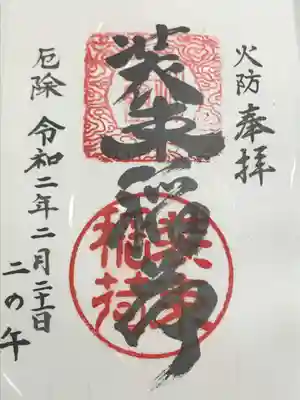 火防 奉拝
装束稲荷
厄除 令和二年二月二十一日
二の午